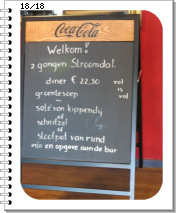 18/18
Coca-Cola
Welkom!
2 gangen Stroomdal.
diner € 22,50 vol
is
vol
groentesoep
~
saté van kippendij
of
schnitzel
of
stoofpot van rund
mio en opgave aan de bar